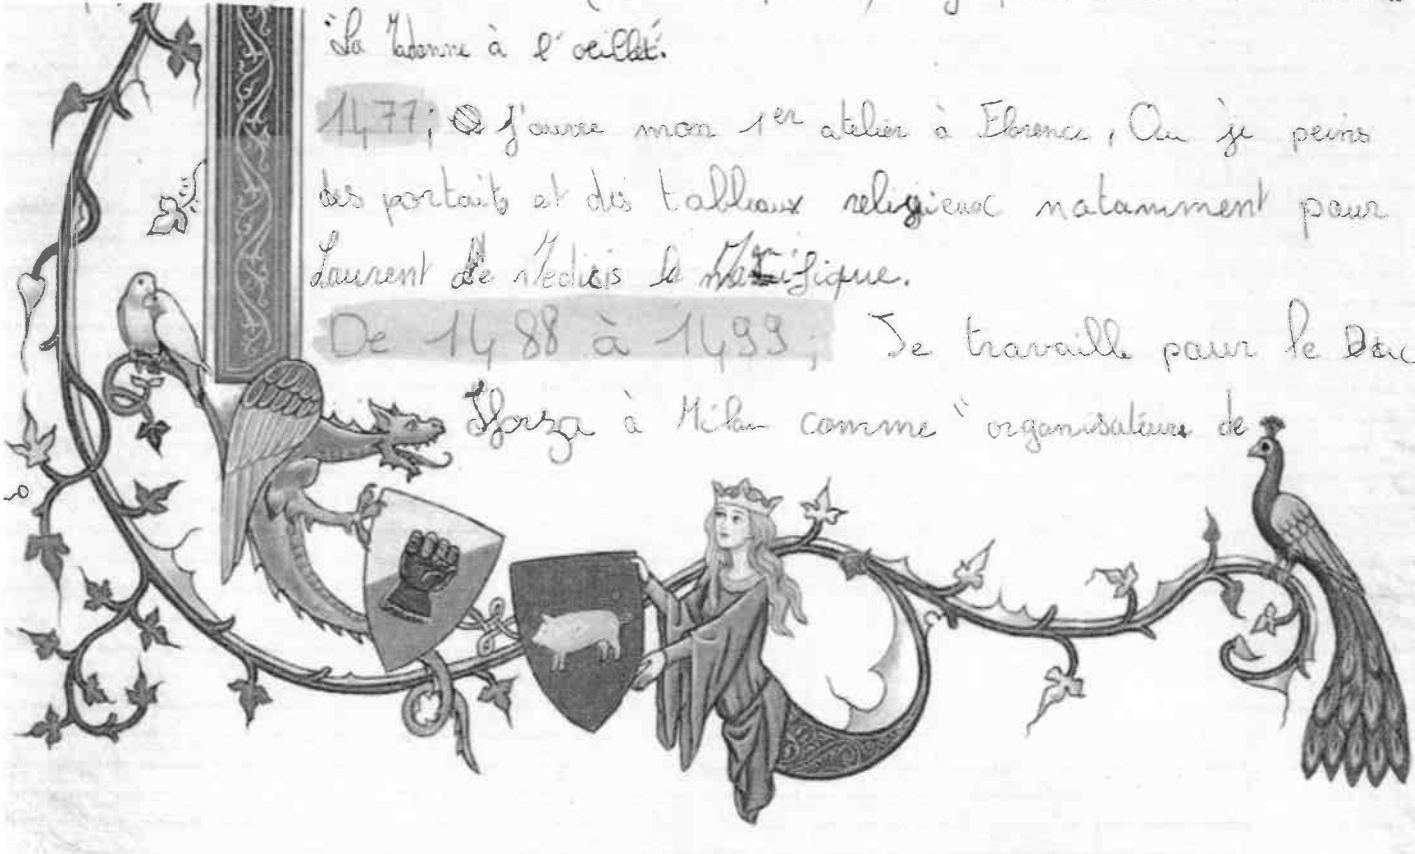 "La Madonne à l'œillet".
1477; J'ouvre mon 1er atelier à Florence, Ou je peins
des portaits et des tableaux religieux natamment pour
Laurent de Medicis le
De 1488 à 1499; Je travaille pour le Duc
Sforza à Milan comme "organisateur de